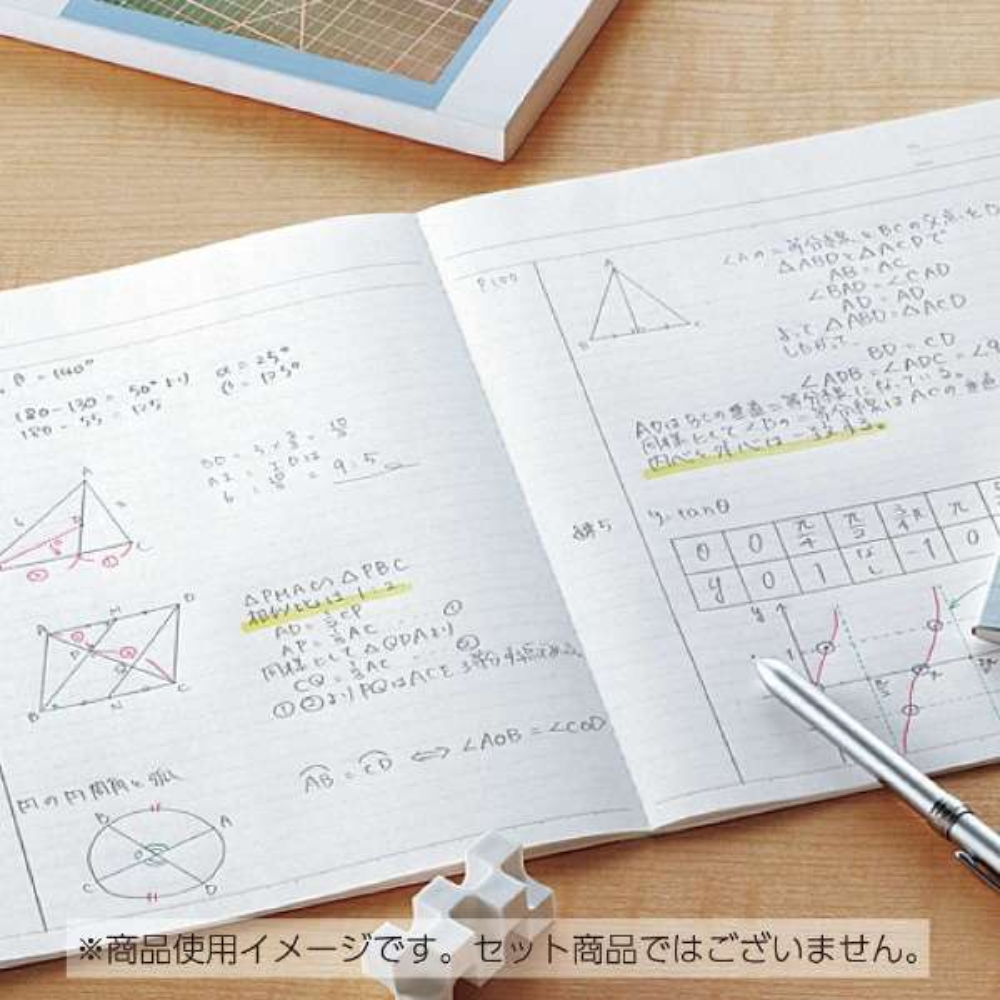 β = 140°
180-130 = 50° より α = 25°
180 - 55 = 125 β = 125°
= 9.5
A
C
△PMA ∽ △PBC
相似比は 1:2
AP = ⅓AC ... ①
同様にして △QDAより
CQ = ⅓AC ... ②
①②よりPQはACを3等分する
A
M
D
P
Q
B
N
C
AB = CD ⟺ ∠AOB = ∠COD
円の円周角と弧
B
A
O
C
D
P100
A
B
C
∠Aの二等分線とBCの交点をD
△ABDと△ACDで
AB = AC
∠BAD = ∠CAD
AD = AD
よって △ABD = △ACD
したがって
BD = CD
∠ADB = ∠ADC = ∠9
ADはBCの垂直二等分線になっている。
同様にして∠Bの二等分線はACの垂直
内心と外心は一致する。
y=tanθ
θ 0 π/4 π/2 3/4π π
y 0 1 なし -1 0
y
1
π/2
π
※商品使用イメージです。セット商品ではございません。